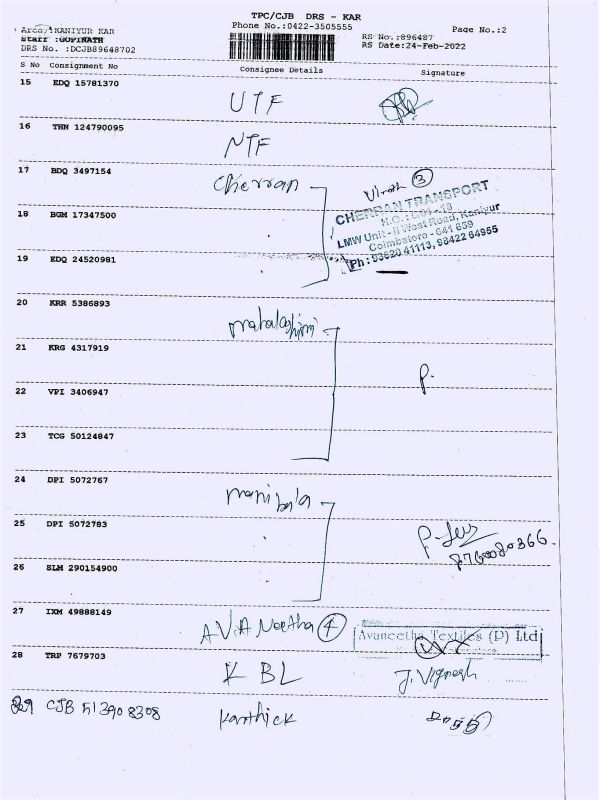 TPC/CJB DRS - KAR
Phone No.:0422-3505555
Page No.:2
Area :KANIYUR KAR
Staff :GOPINATH
DRS No. :DCJB89648702
RS No.:896487
RS Date:24-Feb-2022
S No Consignment No Consignee Details Signature
15 EDQ 15781370 UTF
16 THN 124790095 NTF
17 BDQ 3497154 Cherran
3
CHERRAN TRANSPORT
18 BGM 17347500
LMW Unit - II West Road, Kaniyur
Coimbatore - 641 659
Ph : 93620 41113, 98422 64955
19 EDQ 24520981
20 KRR 5386893
21 KRG 4317919 P.
22 VPI 3406947
23 TCG 50124847
24 DPI 5072767 manibala
25 DPI 5072783
26 SLM 290154900
27 IXM 49888149 4
Avaneetha Textiles (P) Ltd
28 TRP 7679703 K BL J. Vignesh
29 CJB 513908308 Karthick